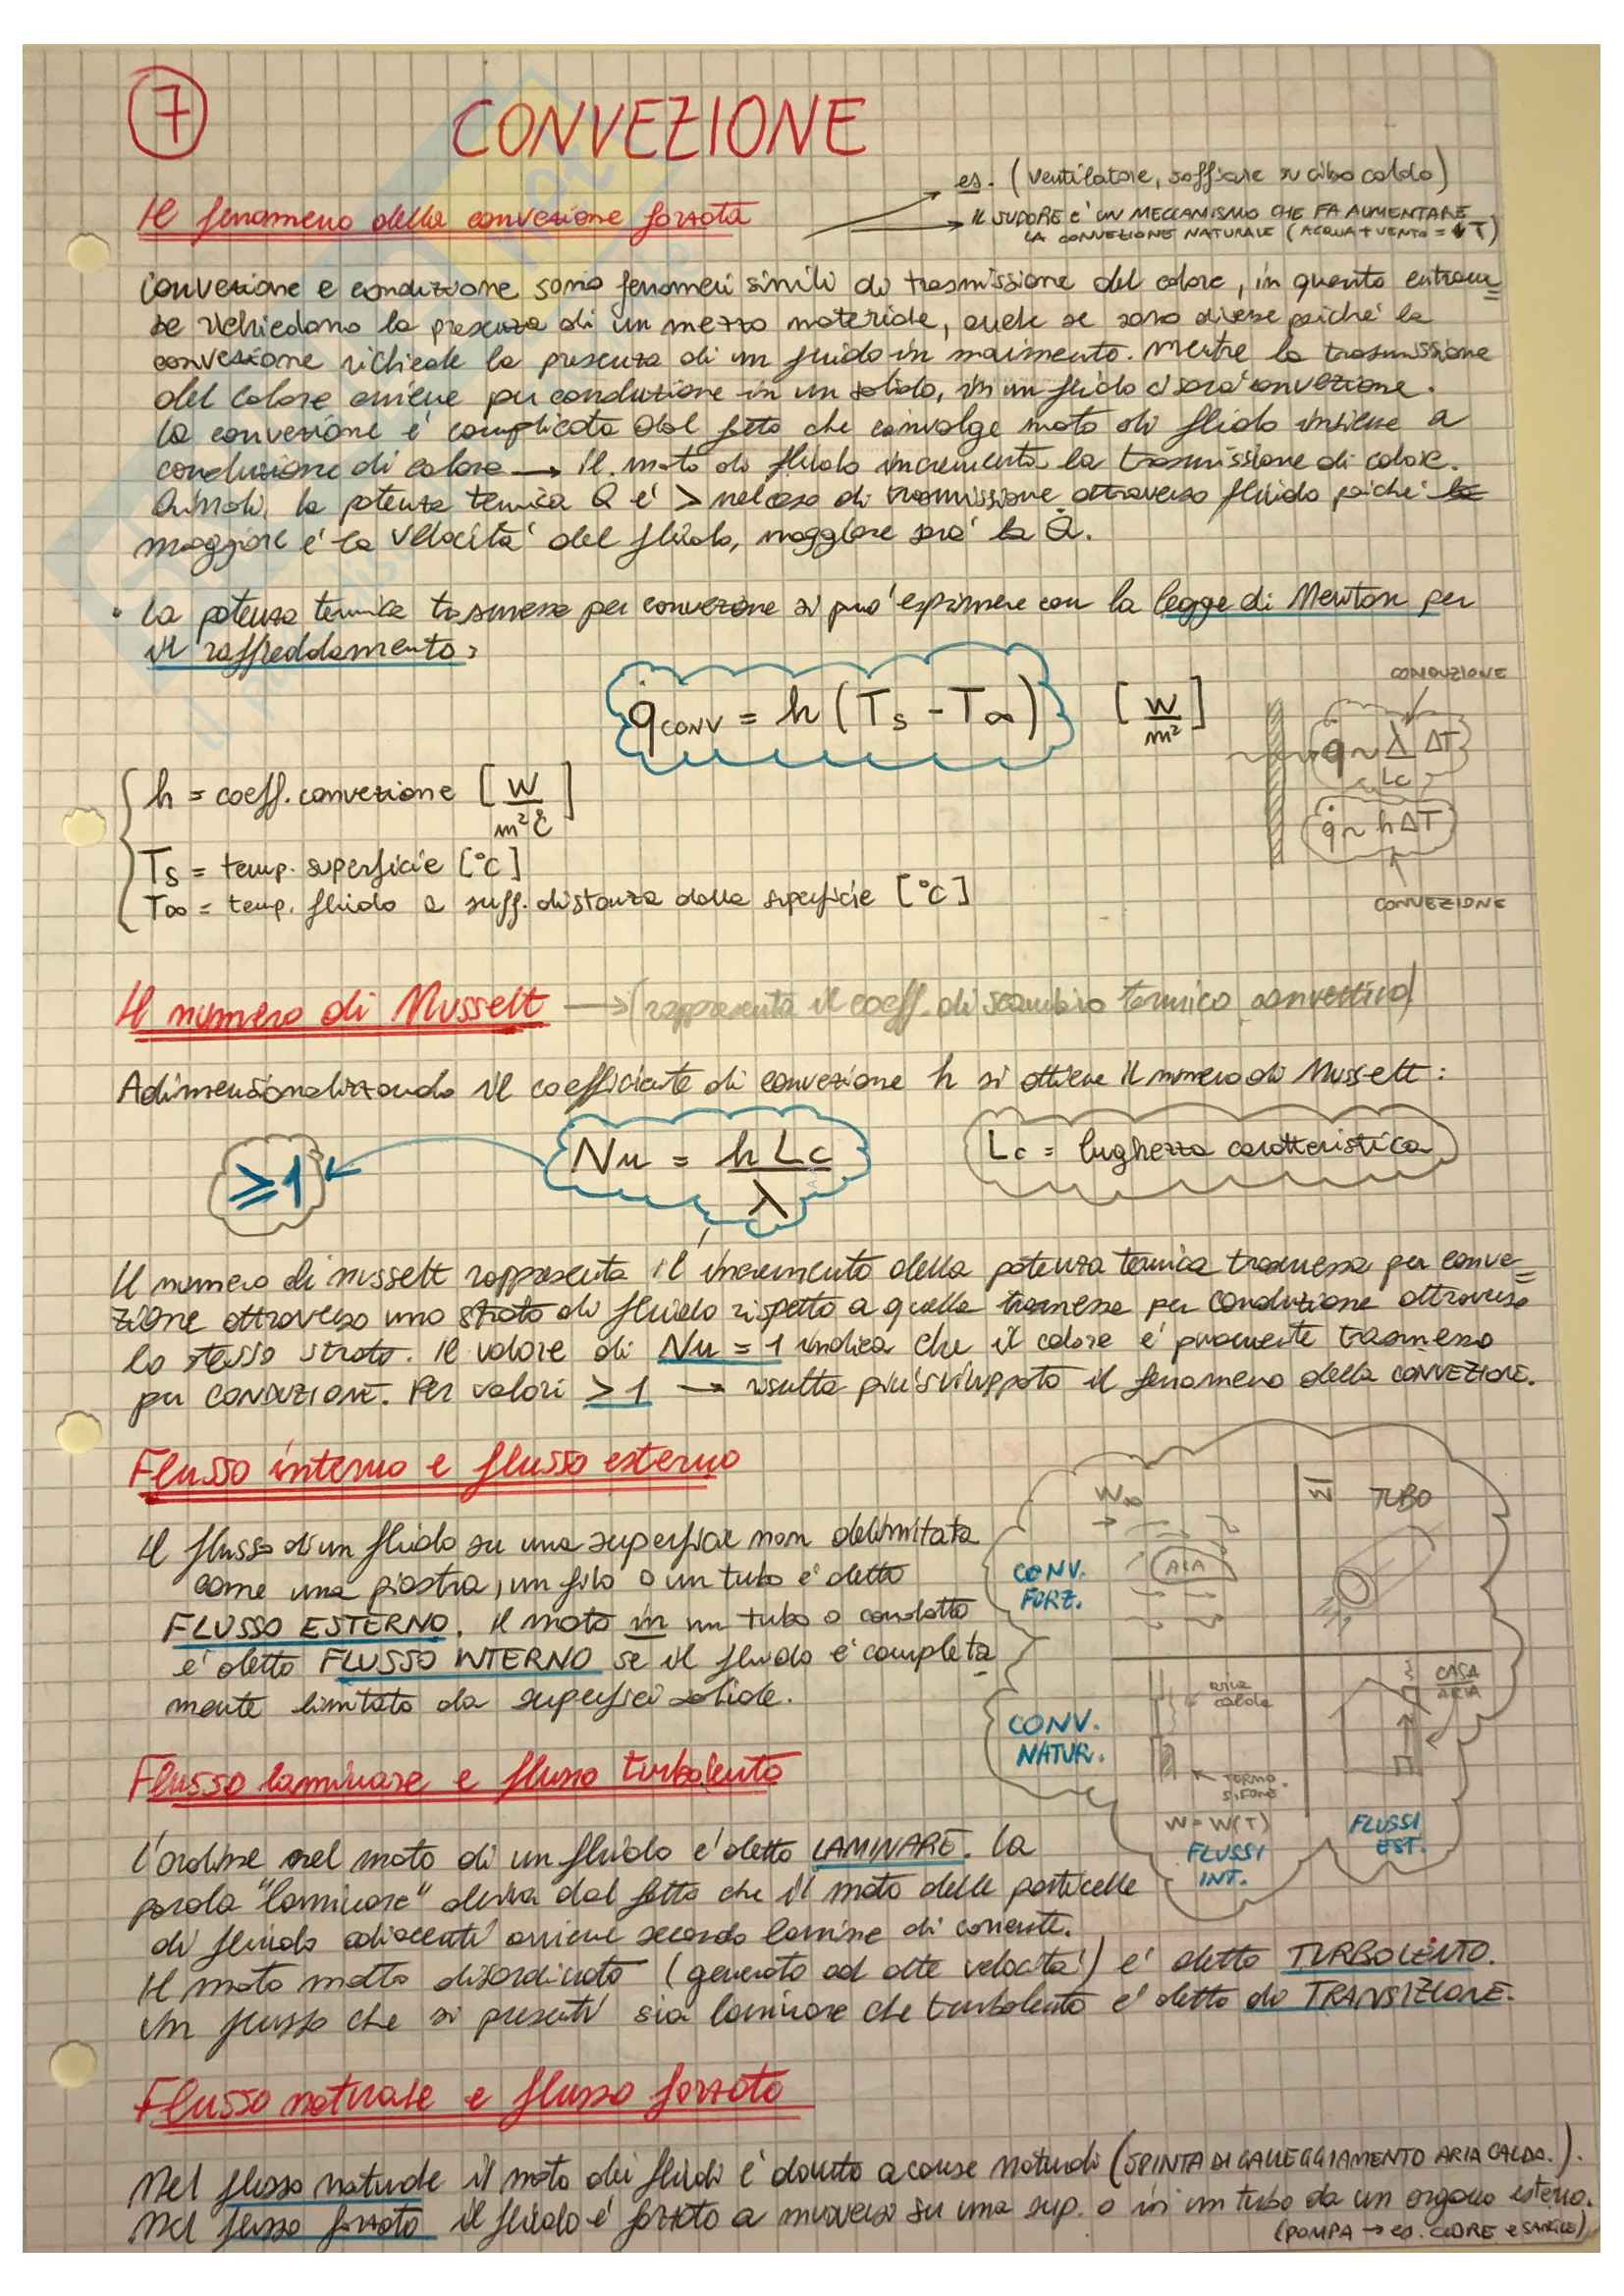 7
CONVEZIONE
Il fenomeno della convezione forzata
es. (ventilatore, soffiare su cibo caldo)
IL SUDORE E' UN MECCANISMO CHE FA AUMENTARE
LA CONVEZIONE NATURALE (ACQUA + VENTO = ↓ T)
Convezione e conduzione sono fenomeni simili di trasmissione del calore, in quanto entram=
be richiedono la presenza di un mezzo materiale, anche se sono diverse poiché la
convezione richiede la presenza di un fluido in movimento. Mentre la trasmissione
del calore avviene per conduzione in un solido, in un fluido ci sarà convezione.
La convezione è complicata dal fatto che coinvolge moto di fluido insieme a
conduzione di calore → il moto di fluido incrementa la trasmissione di calore.
Quindi, la potenza termica Q è > nel caso di trasmissione attraverso fluido poiché
maggiore è la velocità del fluido, maggiore sarà la Q̇.
• La potenza termica trasmessa per convezione si può esprimere con la legge di Newton per
il raffreddamento:
q̇CONV = h (Ts - T∞) [W/m²]
CONDUZIONE
q̇ ~ λ/Lc ΔT
q̇ ~ h ΔT
CONVEZIONE
h = coeff. convezione [W/m²°C]
Ts = temp. superficie [°C]
T∞ = temp. fluido a suff. distanza dalla superficie [°C]
Il numero di Nusselt → (rappresenta il coeff. di scambio termico convettivo)
Adimensionalizzando il coefficiente di convezione h si ottiene il numero di Nusselt:
≥1
Nu = h Lc / λ
Lc = lughezza caratteristica
Il numero di nusselt rappresenta l'incremento della potenza termica trasmessa per conve=
zione attraverso uno strato di fluido rispetto a quella trasmessa per conduzione attraverso
lo stesso strato. Il valore di Nu = 1 indica che il calore è puramente trasmesso
per CONDUZIONE. Per valori > 1 → risulta più sviluppato il fenomeno della CONVEZIONE.
Flusso interno e flusso esterno
Il flusso di un fluido su una superficie non delimitata
come una piastra, un filo o un tubo è detto
FLUSSO ESTERNO. Il moto in un tubo o condotto
è detto FLUSSO INTERNO se il fluido è completa
mente limitato da superfici solide.
W∞
W̄
TUBO
ALA
CONV.
FORZ.
aria
calda
CASA
ARIA
CONV.
NATUR.
TERMO
SIFONE
W = W(T)
FLUSSI
INT.
FLUSSI
EST.
Flusso laminare e flusso turbolento
L'ordine nel moto di un fluido è detto LAMINARE. La
parola "laminare" deriva dal fatto che il moto delle particelle
di fluido adiacenti avviene secondo lamine di corrente.
Il moto molto disordinato (generato ad alte velocità) è detto TURBOLENTO.
Un flusso che si presenti sia laminare che turbolento è detto di TRANSIZIONE.
Flusso naturale e flusso forzato
Nel flusso naturale il moto dei fluidi è dovuto a cause naturali (SPINTA DI GALLEGGIAMENTO ARIA CALDA.).
Nel flusso forzato il fluido è forzato a muoversi su una sup. o in un tubo da un organo esterno.
(POMPA → es. CUORE e SANGUE)